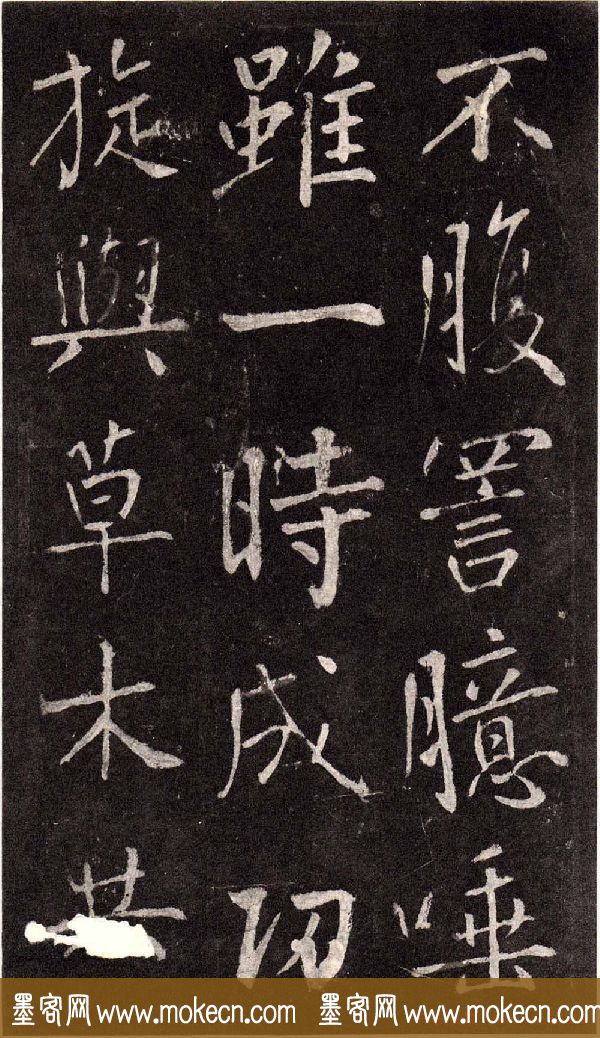 不腹詈臆唾
雖一時成功
旋與草木共
墨客网 www.mokecn.com 墨客网 www.mokecn.com